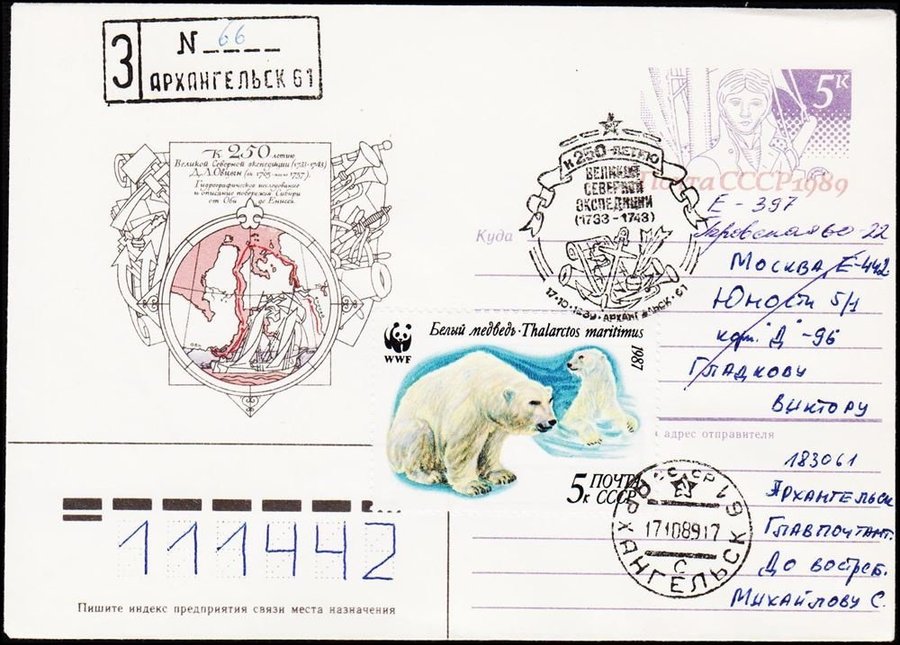 З
N 66
АРХАНГЕЛЬСК 61
К 250 летию
Великой Северной экспедиции (1733-1743)
Д.Л.Овцын
Гидрографическое исследование
и описание побережья Сибири
от Оби до Енисея.
5к
Почта СССР 1989
К 250-ЛЕТИЮ
ВЕЛИКОЙ
СЕВЕРНОЙ
ЭКСПЕДИЦИИ
(1733-1743)
17.10.1989 · АРХАНГЕЛЬСК-61
Куда
Е - 397
-22
Москва Е-442
Юности 5/1
корп. "Д" -96
Гладкову
Виктору
адрес отправителя
183061
Архангельск
Главпочтамт.
До востреб.
Михайлову С.
WWF
Белый медведь·Thalarctos maritimus
1987
5к ПОЧТА
СССР
СССР
АРХАНГЕЛЬСК 61
17108917
С
111442
Пишите индекс предприятия связи места назначения